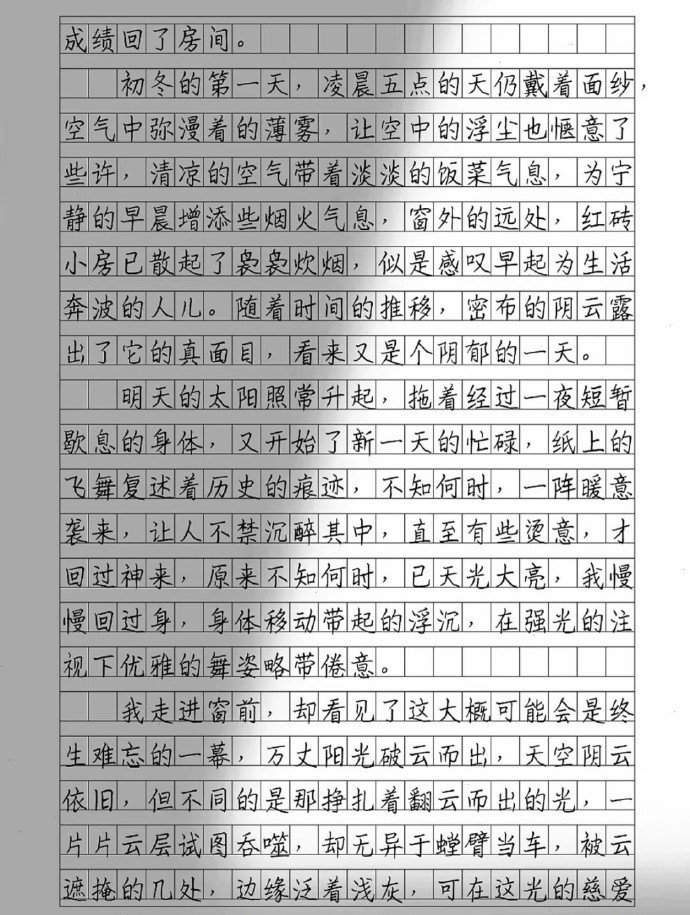 成绩回了房间。
初冬的第一天，凌晨五点的天仍戴着面纱，
空气中弥漫着的薄雾，让空中的浮尘也惬意了
些许，清凉的空气带着淡淡的饭菜气息，为宁
静的早晨增添些烟火气息，窗外的远处，红砖
小房已散起了袅袅炊烟，似是感叹早起为生活
奔波的人儿。随着时间的推移，密布的阴云露
出了它的真面目，看来又是个阴郁的一天。
明天的太阳照常升起，拖着经过一夜短暂
歇息的身体，又开始了新一天的忙碌，纸上的
飞舞复述着历史的痕迹，不知何时，一阵暖意
袭来，让人不禁沉醉其中，直至有些烫意，才
回过神来，原来不知何时，已天光大亮，我慢
慢回过身，身体移动带起的浮沉，在强光的注
视下优雅的舞姿略带倦意。
我走进窗前，却看见了这大概可能会是终
生难忘的一幕，万丈阳光破云而出，天空阴云
依旧，但不同的是那挣扎着翻云而出的光，一
片片云层试图吞噬，却无异于螳臂当车，被云
遮掩的几处，边缘泛着浅灰，可在这光的慈爱